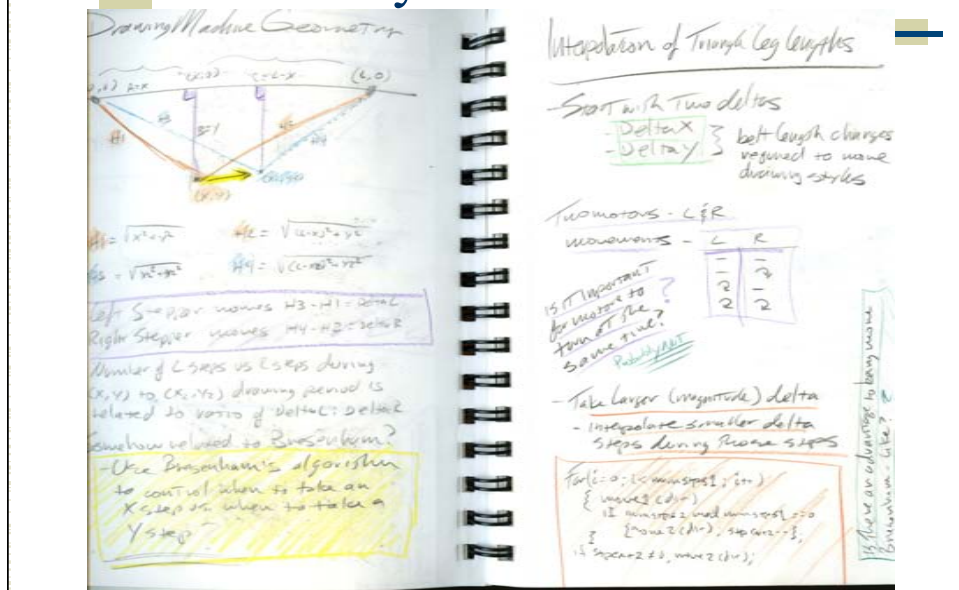 Drawing Machine Geometry
(L,0)
H1
H3
B=Y
H4
(X,Y)
H1 = √X²+Y²
H2 = √(L-X)²+Y²
H4 =
Left Stepper moves H3-H1 = DeltaL
Right Stepper moves H4-H2 = DeltaR
Number of L steps vs L steps during
(X,Y) to (X2,Y2) drawing period is
related to ratio of DeltaL : DeltaR
Somehow related to Bresenham?
- Use Bresenham's algorithm
to control when to take an
X step vs when to take a
Y step
Interpolation of Triangle Leg lengths
- Start with Two deltas
- DeltaX
- DeltaY
belt length changes
required to move
drawing stylus
Two motors - L & R
movements - L R
Is it important
for motors to
turn at the
same time?
Probably not
- Take Larger (magnitude) delta
- interpolate smaller delta
steps during those steps
for(i=0; i< numsteps1; i++)
{ move1(dir)
if numsteps2 mod numsteps1 == 0
{move2(dir), stepcnt2--};
}
if stepcnt2 ≠ 0, move2(dir);
Is there an advantage to being more
Bresenham-like?